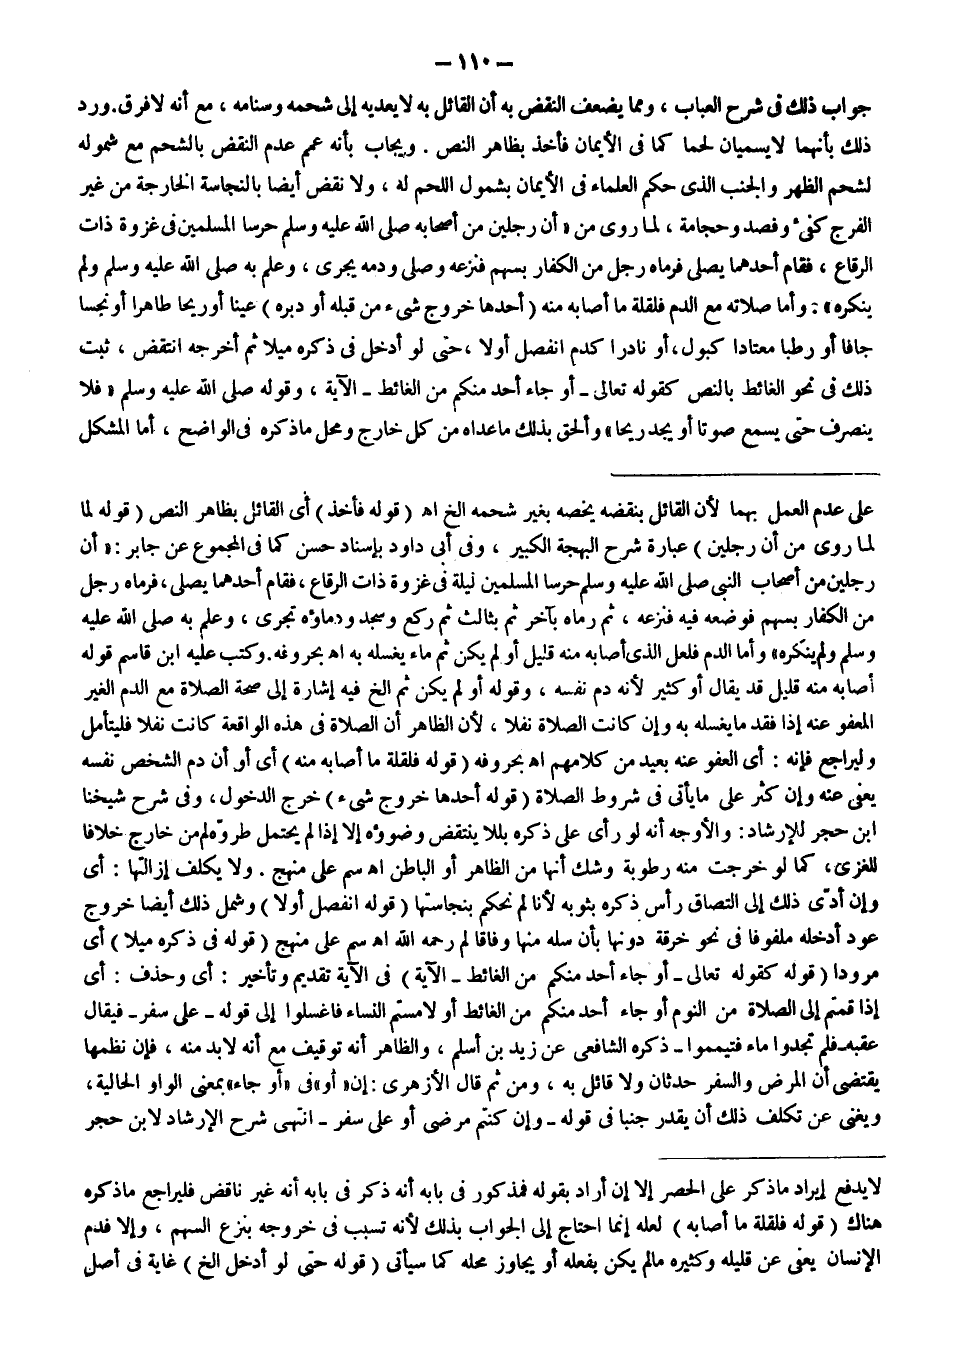 - ١١٠ -
جواب ذلك فى شرح العباب ، ومما يضعف النقض به أن القائل به لا يعديه إلى شحمه وسنامه ، مع أنه لافرق. ورد
ذلك بأنهما لايسميان لحما كما فى الأيمان فأخذ بظاهر النص . ويجاب بأنه عمم عدم النقض بالشحم مع شموله
لشحم الظهر والجنب الذى حكم العلماء فى الأيمان بشمول اللحم له ، ولا نقض أيضا بالنجاسة الخارجة من غير
الفرج كقىء وفصد وحجامة ، لما روى من « أن رجلين من أصحابه صلى الله عليه وسلم حرسا المسلمين فى غزوة ذات
الرقاع ، فقام أحدهما يصلى فرماه رجل من الكفار بسهم فنزعه وصلى ودمه يجرى ، وعلم به صلى الله عليه وسلم ولم
ينكره» : وأما صلاته مع الدم فلقلة ما أصابه منه ( أحدها خروج شىء من قبله أو دبره ) عينا أو ريحا طاهرا أو نجسا
جافا أو رطبا معتادا كبول، أو نادرا كدم انفصل أولا ،حتى لو أدخل فى ذكره ميلا ثم أخرجه انتقض ، ثبت
ذلك فى نحو الغائط بالنص كقوله تعالى ـ أو جاء أحد منكم من الغائط ـ الآية ، وقوله صلى الله عليه وسلم « فلا
ينصرف حتى يسمع صوتا أو يجد ريحا» وألحق بذلك ماعداه من كل خارج ومحل ماذكره فى الواضح ، أما المشكل
على عدم العمل بهما لأن القائل بنقضه يخصه بغير شحمه الخ اه ( قوله فأخذ ) أى القائل بظاهر النص ( قوله لما
لما روى من أن رجلين ) عبارة شرح البهجة الكبير ، وفى أبى داود بإسناد حسن كما فى المجموع عن جابر : « أن
رجلين من أصحاب النبى صلى الله عليه وسلم حرسا المسلمين ليلة فى غزوة ذات الرقاع ، فقام أحدهما يصلى ، فرماه رجل
من الكفار بسهم فوضعه فيه فنزعه ، ثم رماه بآخر ثم بثالث ثم ركع وسجد ودماؤه تجرى ، وعلم به صلى الله عليه
وسلم ولم ينكره» وأما الدم فلعل الذى أصابه منه قليل أو لم يكن ثم ماء يغسله به اه بحروفه. وكتب عليه ابن قاسم قوله
أصابه منه قليل قد يقال أو كثير لأنه دم نفسه ، وقوله أو لم يكن ثم الخ فيه إشارة إلى صحة الصلاة مع الدم الغير
المعفو عنه إذا فقد مايغسله به وإن كانت الصلاة نفلا ، لأن الظاهر أن الصلاة فى هذه الواقعة كانت نفلا فليتأمل
وليراجع فإنه : أى العفو عنه بعيد من كلامهم اه بحروفه ( قوله فلقلة ما أصابه منه ) أى أو أن دم الشخص نفسه
يعفى عنه وإن كثر على مايأتى فى شروط الصلاة ( قوله أحدها خروج شىء ) خرج الدخول ، وفى شرح شيخنا
ابن حجر للإرشاد : والأوجه أنه لو رأى على ذكره بللا ينتقض وضوؤه إلا إذا لم يحتمل طروّه من خارج خلافا
للغزى، كما لو خرجت منه رطوبة وشك أنها من الظاهر أو الباطن اه سم على منهج . ولا يكلف إزالتها : أى
وإن أدّى ذلك إلى التصاق رأس ذكره بثوبه لأنا لم نحكم بنجاستها ( قوله انفصل أولا ) وشمل ذلك أيضا خروج
عود أدخله ملفوفا فى نحو خرقة دونها بأن سله منها وفاقا لم رحمه الله اه سم على منهج ( قوله فى ذكره ميلا ) أى
مرودا ( قوله كقوله تعالى ـ أو جاء أحد منكم من الغائط ـ الآية ) فى الآية تقديم وتأخير : أى وحذف : أى
إذا قمتم إلى الصلاة من النوم أو جاء أحد منكم من الغائط أو لامستم النساء فاغسلوا إلى قوله ـ على سفر ـ فيقال
عقبه ـ فلم تجدوا ماء فتيمموا ـ ذكره الشافعى عن زيد بن أسلم ، والظاهر أنه توقيف مع أنه لابد منه ، فإن نظمها
يقتضى أن المرض والسفر حدثان ولا قائل به ، ومن ثم قال الأزهرى : إن« أو» فى «أو جاء» بمعنى الواو الحالية ،
ويغنى عن تكلف ذلك أن يقدر جنبا فى قوله ـ وإن كنتم مرضى أو على سفر ـ انتهى شرح الإرشاد لابن حجر
لايدفع إيراد ماذكر على الحصر إلا إن أراد بقوله فمذكور فى بابه أنه ذكر فى بابه أنه غير ناقض فليراجع ماذكره
هناك ( قوله فلقلة ما أصابه ) لعله إنما احتاج إلى الجواب بذلك لأنه تسبب فى خروجه بنزع السهم ، وإلا فدم
الإنسان يعفى عن قليله وكثيره مالم يكن بفعله أو يجاوز محله كما سيأتى ( قوله حتى لو أدخل الخ ) غاية فى أصل